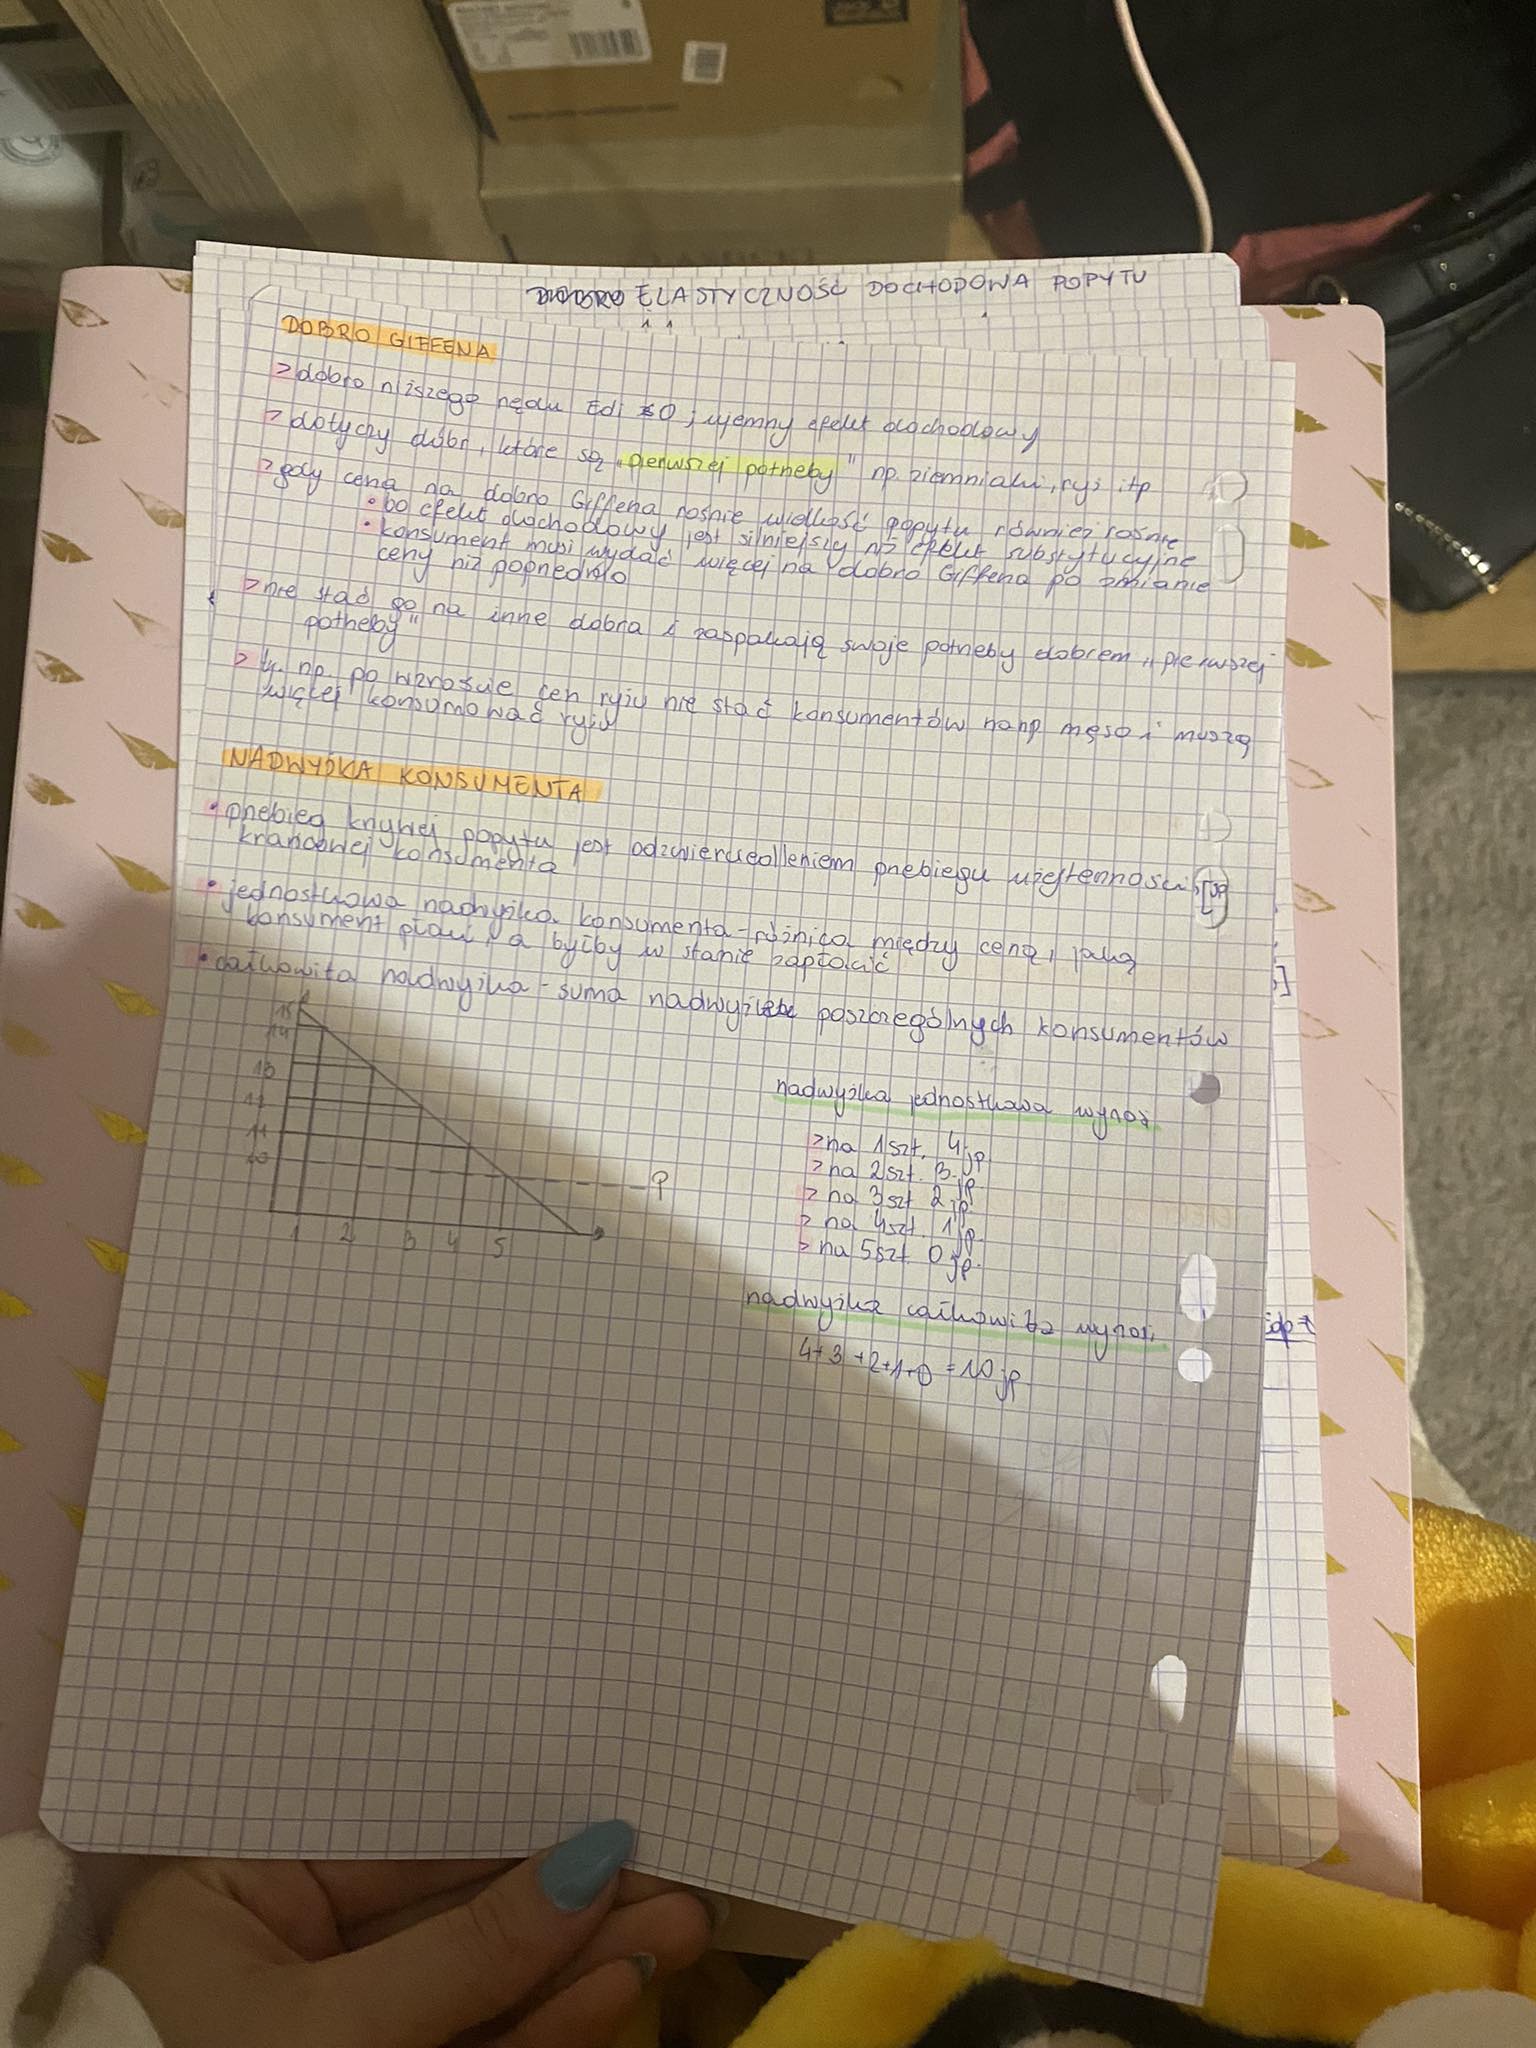 DOBRO ELASTYCZNOŚĆ DOCHODOWA POPYTU
DOBRO GIFFENA
> dobro niższego rzędu Edi <0; ujemny efekt dochodowy
> dotyczy dóbr, które są "pierwszej potrzeby" np. ziemniaki, ryż itp
> gdy cena na dobro Giffena rośnie wielkość popytu również rośnie
• bo efekt dochodowy jest silniejszy niż efekt substytucyjne
• konsument musi wydać więcej na dobro Giffena po zmianie
ceny niż poprzednio
> nie stać go na inne dobra i zaspakają swoje potrzeby dobrem "pierwszej
potrzeby"
> tj. np. po wzroście cen ryżu nie stać konsumentów na np mięso i muszą
więcej konsumować ryżu
NADWYŻKA KONSUMENTA
• przebieg krzywej popytu jest odzwierciedleniem przebiegu użyteczności
krańcowej konsumenta
• jednostkowa nadwyżka konsumenta - różnica między ceną, jaką
konsument płaci, a byłby w stanie zapłacić
• całkowita nadwyżka - suma nadwyżek poszczególnych konsumentów
15
14
13
12
11
10
P
1 2 3 4 5
nadwyżka jednostkowa wynosi
> na 1szt. 4 jp
> na 2szt. 3 jp
> na 3szt 2 jp
> na 4szt. 1 jp.
> na 5szt. 0 jp.
nadwyżka całkowita wynosi
4+3+2+1+0 = 10 jp